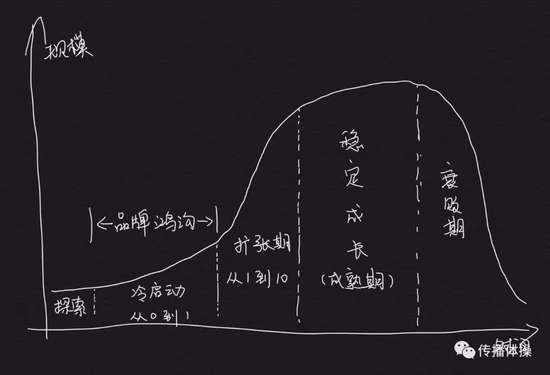 规模
品牌鸿沟
探索
冷启动
从0到1
扩张期
从1到10
稳定成长
(成熟期)
衰败期
传播体操